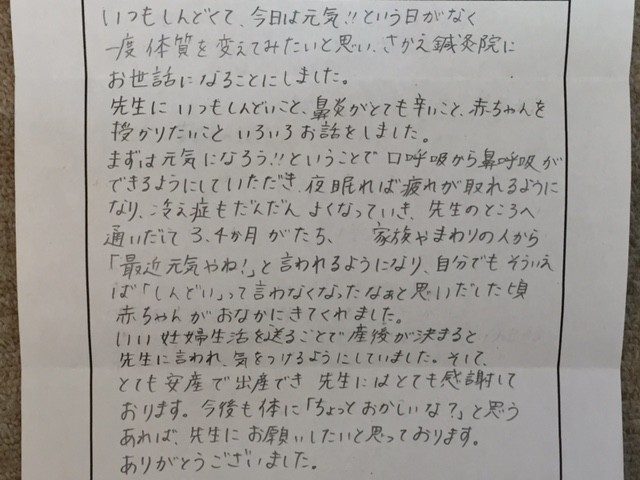 いつもしんどくて、今日は元気!!という日がなく
一度体質を変えてみたいと思い、さかえ鍼灸院に
お世話になることにしました。
先生に いつもしんどいこと、鼻炎がとても辛いこと、赤ちゃんを
授かりたいこと いろいろお話をしました。
まずは元気になろう!!ということで 口呼吸から鼻呼吸が
できるようにしていただき、夜眠れば疲れが取れるように
なり、冷え症もだんだん よくなっていき、先生のところへ
通いだして 3、4か月 がたち、 家族やまわりの人から
「最近元気やね!」と言われるようになり、自分でも そういえ
ば「しんどい」って言わなくなったなぁと思いだした頃
赤ちゃんが おなかにきてくれました。
いい 妊婦生活を送ることで産後が決まると
先生に言われ、気をつけるようにしていました。そして、
とても 安産で出産でき 先生にはとても感謝して
おります。今後も体に「ちょっとおかしいな?」と思う
あれば、先生に お願いしたいと思っております。
ありがとうございました。